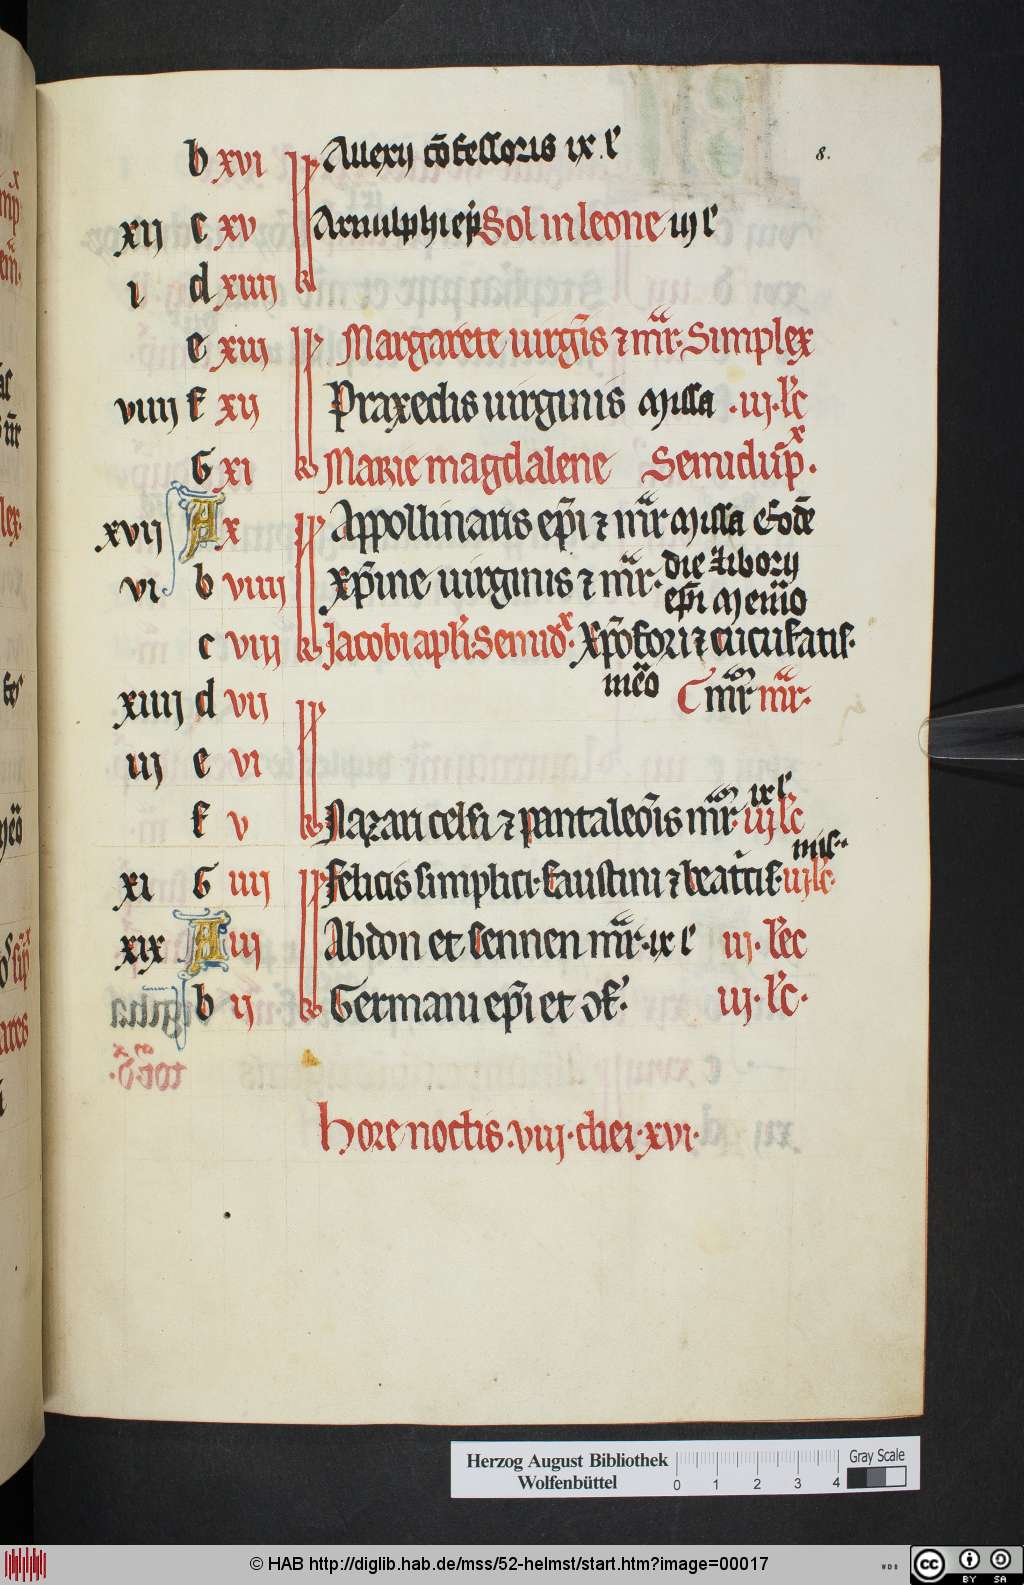 8.
b xvi Allexij cōfessoris ix l'
xij c xv Arnulphi ep̄i Sol in leone iij l'
i d xiiij
e xiij Margarete uirgīs ⁊ mr̄. Simplex
viiij f xij Praxedis uirginis Missa .iij. l'c
G xi Marie magdalene Semidup̄x.
xvij A x Appollinaris ep̄i ⁊ mr̄ Missa Eodē
vi b viiij xp̄ine uirginis ⁊ mr̄. die Liborij
ep̄i Memō
c viij Jacobi apl'i. Semidx̄. Xp̄ofori ⁊ cucufatis.
meō mr̄m mr̄.
xiiij d vij
iij e vi
ix l'
f v Nazarii celsi ⁊ pantaleōis mr̄m. iij l'c
mis..
xi G iiij Felicis simplici. faustini ⁊ beat'cis. iij l'c.
xix A iij Abdon et sennen mr̄. ix l' iij. l'ec
b ij Germani ep̄i et ɔf'. iij. l'c.
Hore noctis .viij. diei .xvi.
Herzog August Bibliothek
Wolfenbüttel
0 1 2 3 4
Gray Scale
© HAB http://diglib.hab.de/mss/52-helmst/start.htm?image=00017
WDB
cc BY SA